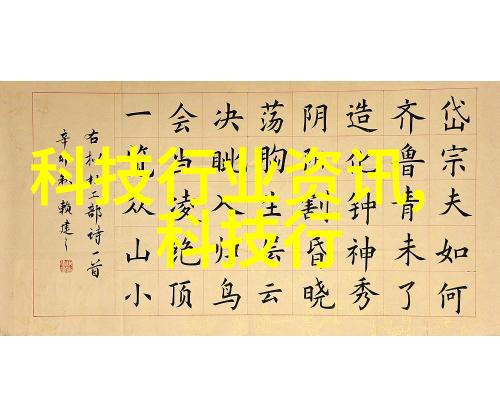 科技行业资讯,
科技行
岱宗夫如何
齐鲁青未了
造化钟神秀
阴阳割昏晓
荡胸生层云
决眦入归鸟
会当凌绝顶
一览众山小
右杜工部诗一首
辛卯